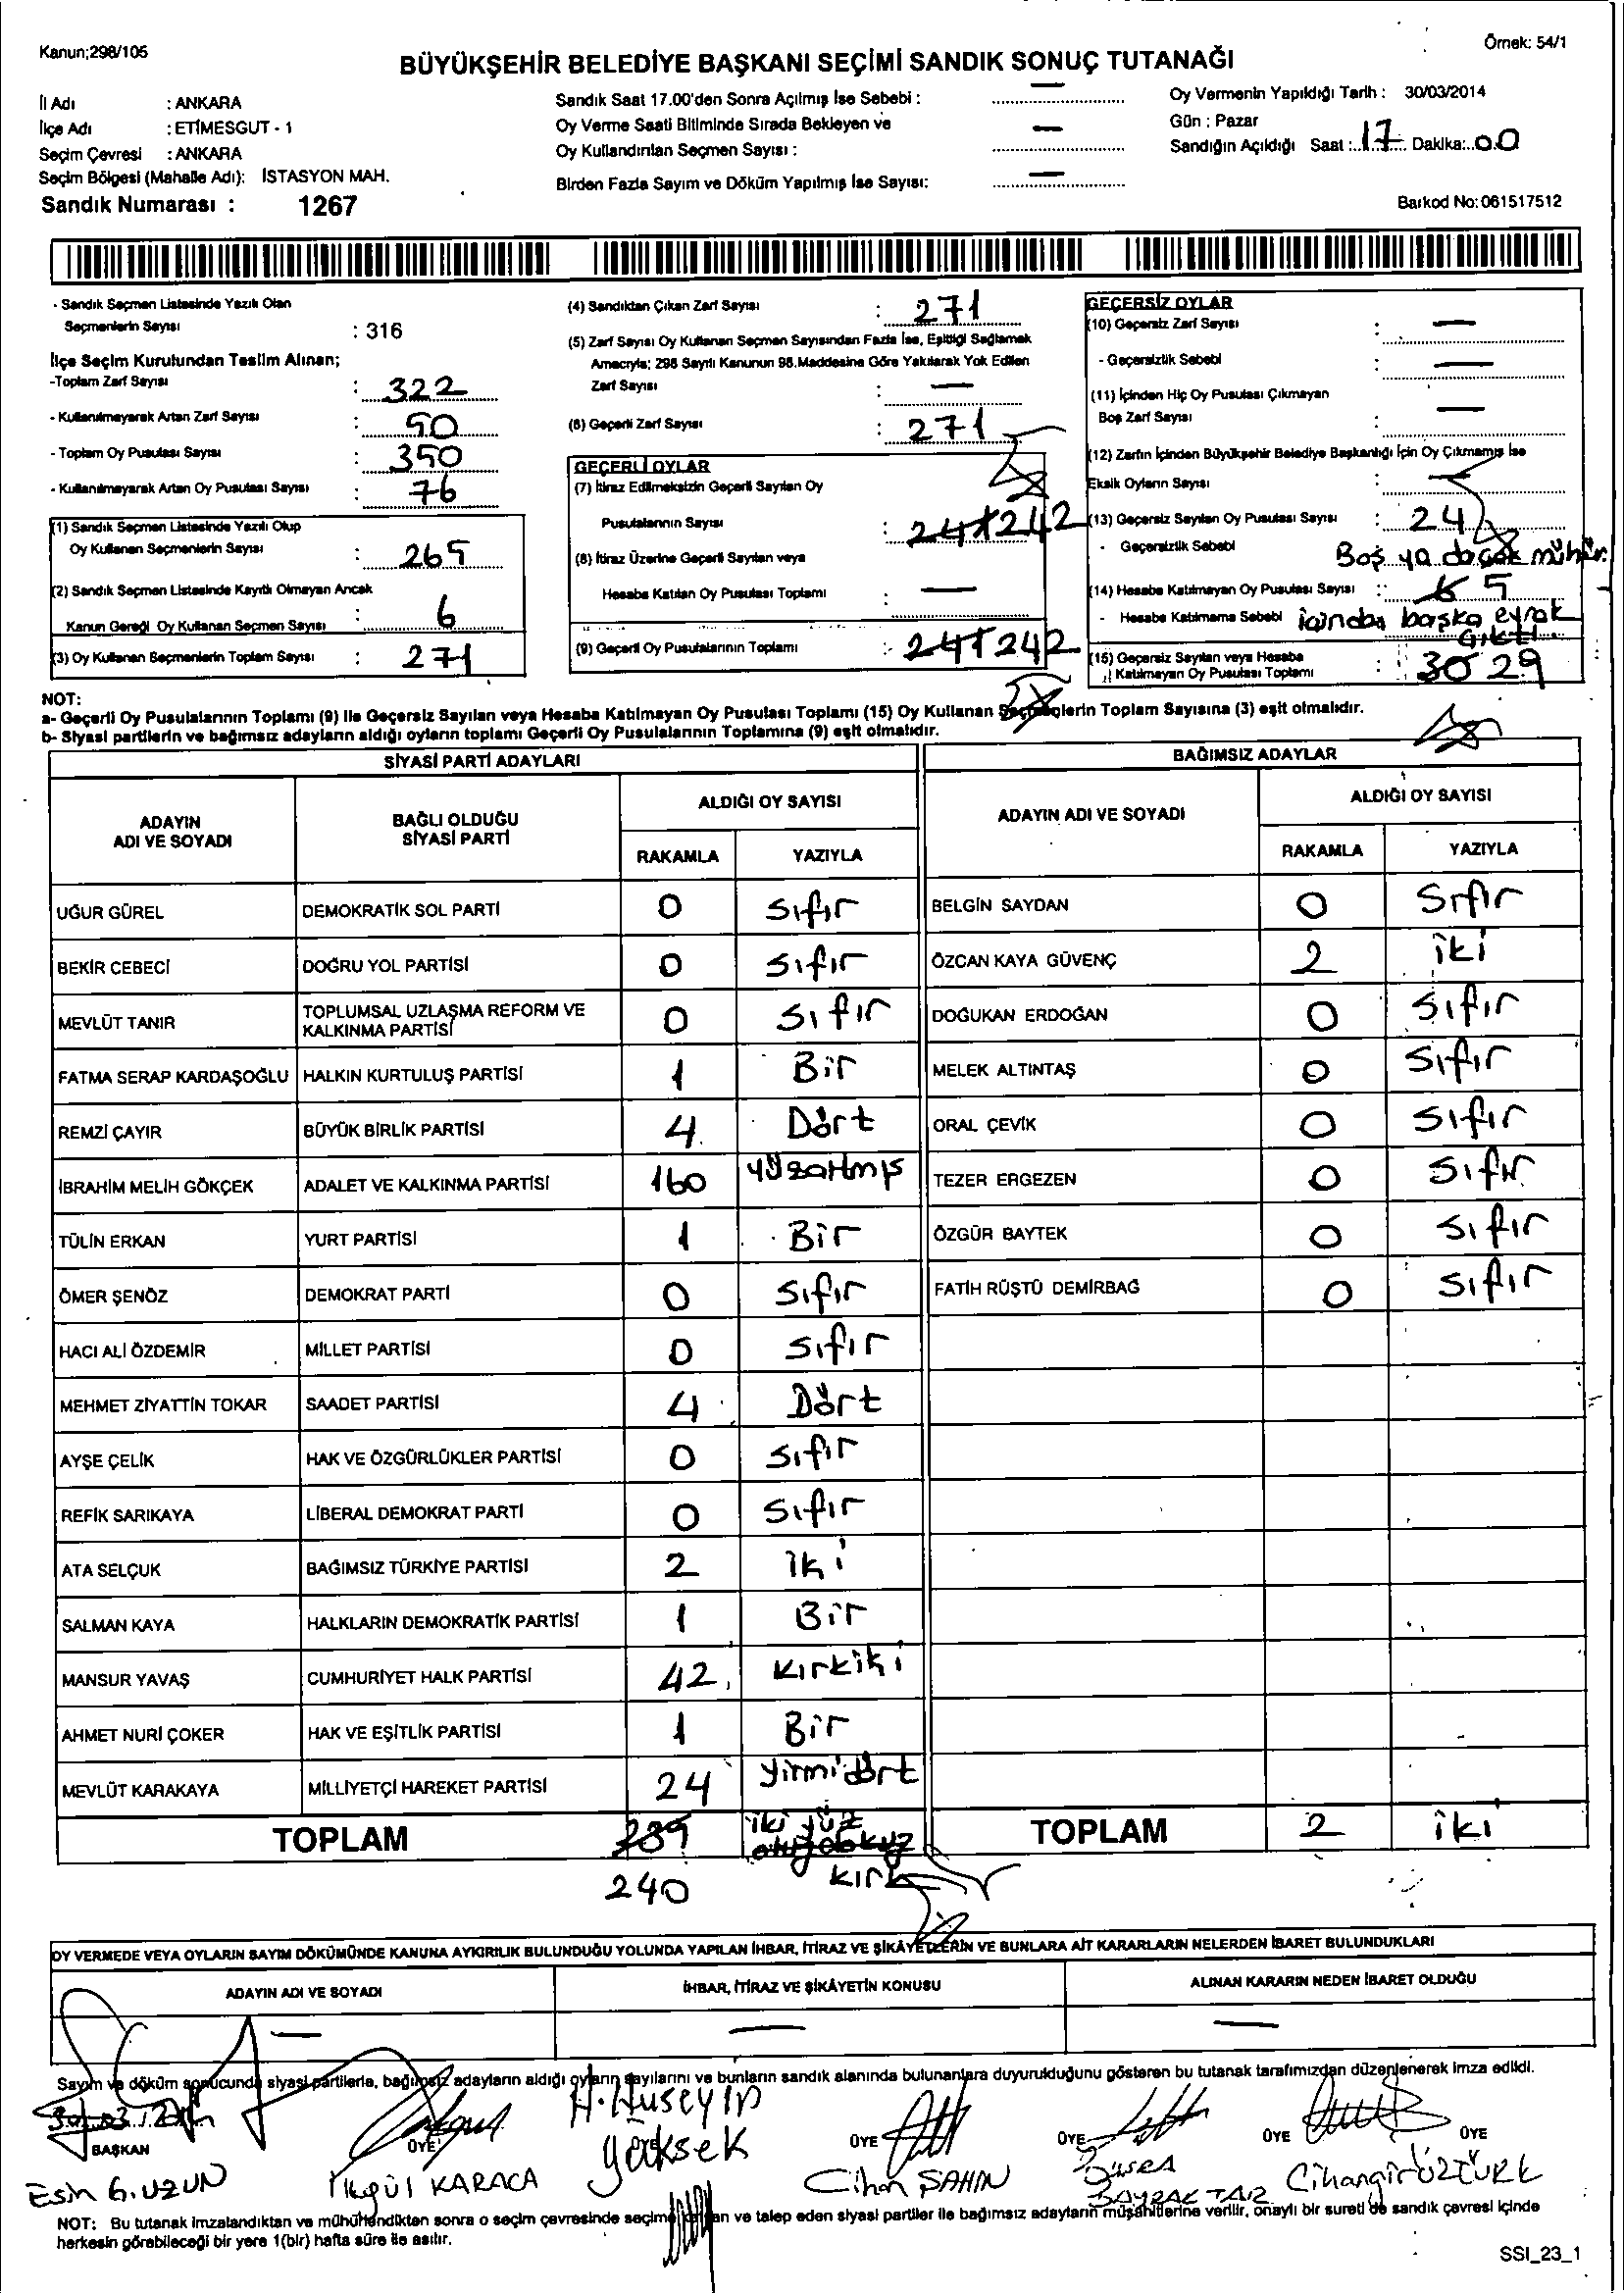 Kanun;298/105
Örnek: 54/1
BÜYÜKŞEHİR BELEDİYE BAŞKANI SEÇİMİ SANDIK SONUÇ TUTANAĞI
İl Adı : ANKARA
İlçe Adı : ETİMESGUT - 1
Seçim Çevresi : ANKARA
Seçim Bölgesi (Mahalle Adı): İSTASYON MAH.
Sandık Numarası : 1267
Sandık Saat 17.00'den Sonra Açılmış İse Sebebi : —
Oy Verme Saati Bitiminde Sırada Bekleyen ve
Oy Kullandırılan Seçmen Sayısı : —
Birden Fazla Sayım ve Döküm Yapılmış İse Sayısı: —
Oy Vermenin Yapıldığı Tarih : 30/03/2014
Gün : Pazar
Sandığın Açıldığı Saat : 17 Dakika: 00
Barkod No: 061517512
- Sandık Seçmen Listesinde Yazılı Olan
Seçmenlerin Sayısı : 316
İlçe Seçim Kurulundan Teslim Alınan;
-Toplam Zarf Sayısı : 322
- Kullanılmayarak Artan Zarf Sayısı : 50
- Toplam Oy Pusulası Sayısı : 350
- Kullanılmayarak Artan Oy Pusulası Sayısı : 76
(1) Sandık Seçmen Listesinde Yazılı Olup
Oy Kullanan Seçmenlerin Sayısı : 265
(2) Sandık Seçmen Listesinde Kayıtlı Olmayan Ancak
Kanun Gereği Oy Kullanan Seçmen Sayısı : 6
(3) Oy Kullanan Seçmenlerin Toplam Sayısı : 271
(4) Sandıktan Çıkan Zarf Sayısı : 271
(5) Zarf Sayısı Oy Kullanan Seçmen Sayısından Fazla İse, Eşitliği Sağlamak
Amacıyla; 298 Sayılı Kanunun 98.Maddesine Göre Yakılarak Yok Edilen
Zarf Sayısı : —
(6) Geçerli Zarf Sayısı : 271
GEÇERLİ OYLAR
(7) İtiraz Edilmeksizin Geçerli Sayılan Oy
Pusulalarının Sayısı : 241 242
(8) İtiraz Üzerine Geçerli Sayılan veya
Hesaba Katılan Oy Pusulası Toplamı : —
(9) Geçerli Oy Pusulalarının Toplamı : 241 242
GEÇERSİZ OYLAR
(10) Geçersiz Zarf Sayısı : —
- Geçersizlik Sebebi : —
(11) İçinden Hiç Oy Pusulası Çıkmayan
Boş Zarf Sayısı : —
(12) Zarfın İçinden Büyükşehir Belediye Başkanlığı İçin Oy Çıkmamış İse
Eksik Oyların Sayısı : —
(13) Geçersiz Sayılan Oy Pusulası Sayısı : 24
- Geçersizlik Sebebi Boş ya da çok mühür.
(14) Hesaba Katılmayan Oy Pusulası Sayısı : 6 5
- Hesaba Katılmama Sebebi içinden başka evrak
çıktı.
(15) Geçersiz Sayılan veya Hesaba
Katılmayan Oy Pusulası Toplamı : 30 29
NOT:
a- Geçerli Oy Pusulalarının Toplamı (9) ile Geçersiz Sayılan veya Hesaba Katılmayan Oy Pusulası Toplamı (15) Oy Kullanan Seçmenlerin Toplam Sayısına (3) eşit olmalıdır.
b- Siyasi partilerin ve bağımsız adayların aldığı oyların toplamı Geçerli Oy Pusulalarının Toplamına (9) eşit olmalıdır.
SİYASİ PARTİ ADAYLARI
ADAYIN ADI VE SOYADI BAĞLI OLDUĞU SİYASİ PARTİ ALDIĞI OY SAYISI
RAKAMLA YAZIYLA
UĞUR GÜREL DEMOKRATİK SOL PARTİ 0 Sıfır
BEKİR CEBECİ DOĞRU YOL PARTİSİ 0 Sıfır
MEVLÜT TANIR TOPLUMSAL UZLAŞMA REFORM VE KALKINMA PARTİSİ 0 Sıfır
FATMA SERAP KARDAŞOĞLU HALKIN KURTULUŞ PARTİSİ 1 Bir
REMZİ ÇAYIR BÜYÜK BİRLİK PARTİSİ 4 Dört
İBRAHİM MELİH GÖKÇEK ADALET VE KALKINMA PARTİSİ 160 yüzaltmış
TÜLİN ERKAN YURT PARTİSİ 1 Bir
ÖMER ŞENÖZ DEMOKRAT PARTİ 0 Sıfır
HACI ALİ ÖZDEMİR MİLLET PARTİSİ 0 Sıfır
MEHMET ZİYATTİN TOKAR SAADET PARTİSİ 4 Dört
AYŞE ÇELİK HAK VE ÖZGÜRLÜKLER PARTİSİ 0 Sıfır
REFİK SARIKAYA LİBERAL DEMOKRAT PARTİ 0 Sıfır
ATA SELÇUK BAĞIMSIZ TÜRKİYE PARTİSİ 2 iki
SALMAN KAYA HALKLARIN DEMOKRATİK PARTİSİ 1 Bir
MANSUR YAVAŞ CUMHURİYET HALK PARTİSİ 42 kırkiki
AHMET NURİ ÇOKER HAK VE EŞİTLİK PARTİSİ 1 Bir
MEVLÜT KARAKAYA MİLLİYETÇİ HAREKET PARTİSİ 24 yirmidört
TOPLAM 239 iki yüz otuzdokuz
240 kırk
BAĞIMSIZ ADAYLAR
ADAYIN ADI VE SOYADI ALDIĞI OY SAYISI
RAKAMLA YAZIYLA
BELGİN SAYDAN 0 Sıfır
ÖZCAN KAYA GÜVENÇ 2 iki
DOĞUKAN ERDOĞAN 0 Sıfır
MELEK ALTINTAŞ 0 Sıfır
ORAL ÇEVİK 0 Sıfır
TEZER ERGEZEN 0 Sıfır
ÖZGÜR BAYTEK 0 Sıfır
FATİH RÜŞTÜ DEMİRBAĞ 0 Sıfır
TOPLAM 2 iki
OY VERMEDE VEYA OYLARIN SAYIM DÖKÜMÜNDE KANUNA AYKIRILIK BULUNDUĞU YOLUNDA YAPILAN İHBAR, İTİRAZ VE ŞİKÂYETLERİN VE BUNLARA AİT KARARLARIN NELERDEN İBARET BULUNDUKLARI
ADAYIN ADI VE SOYADI İHBAR, İTİRAZ VE ŞİKÂYETİN KONUSU ALINAN KARARIN NEDEN İBARET OLDUĞU
— — —
Sayım ve döküm sonucunda siyasi partilerle, bağımsız adayların aldığı oyların sayılarını ve bunların sandık alanında bulunanlara duyurulduğunu gösteren bu tutanak tarafımızdan düzenlenerek imza edildi.
BAŞKAN ÜYE ÜYE ÜYE ÜYE ÜYE ÜYE
Esin G. UZUN İlkgül KARACA H. Hüseyin Yüksek Cihan ŞAHİN BAYRAKTAR Cihangir ÖZTÜRK
NOT: Bu tutanak imzalandıktan ve mühürlendikten sonra o seçim çevresinde seçime katılan ve talep eden siyasi partiler ile bağımsız adayların müşahitlerine verilir, onaylı bir sureti de sandık çevresi içinde
herkesin görebileceği bir yere 1(bir) hafta süre ile asılır.
SSI_23_1